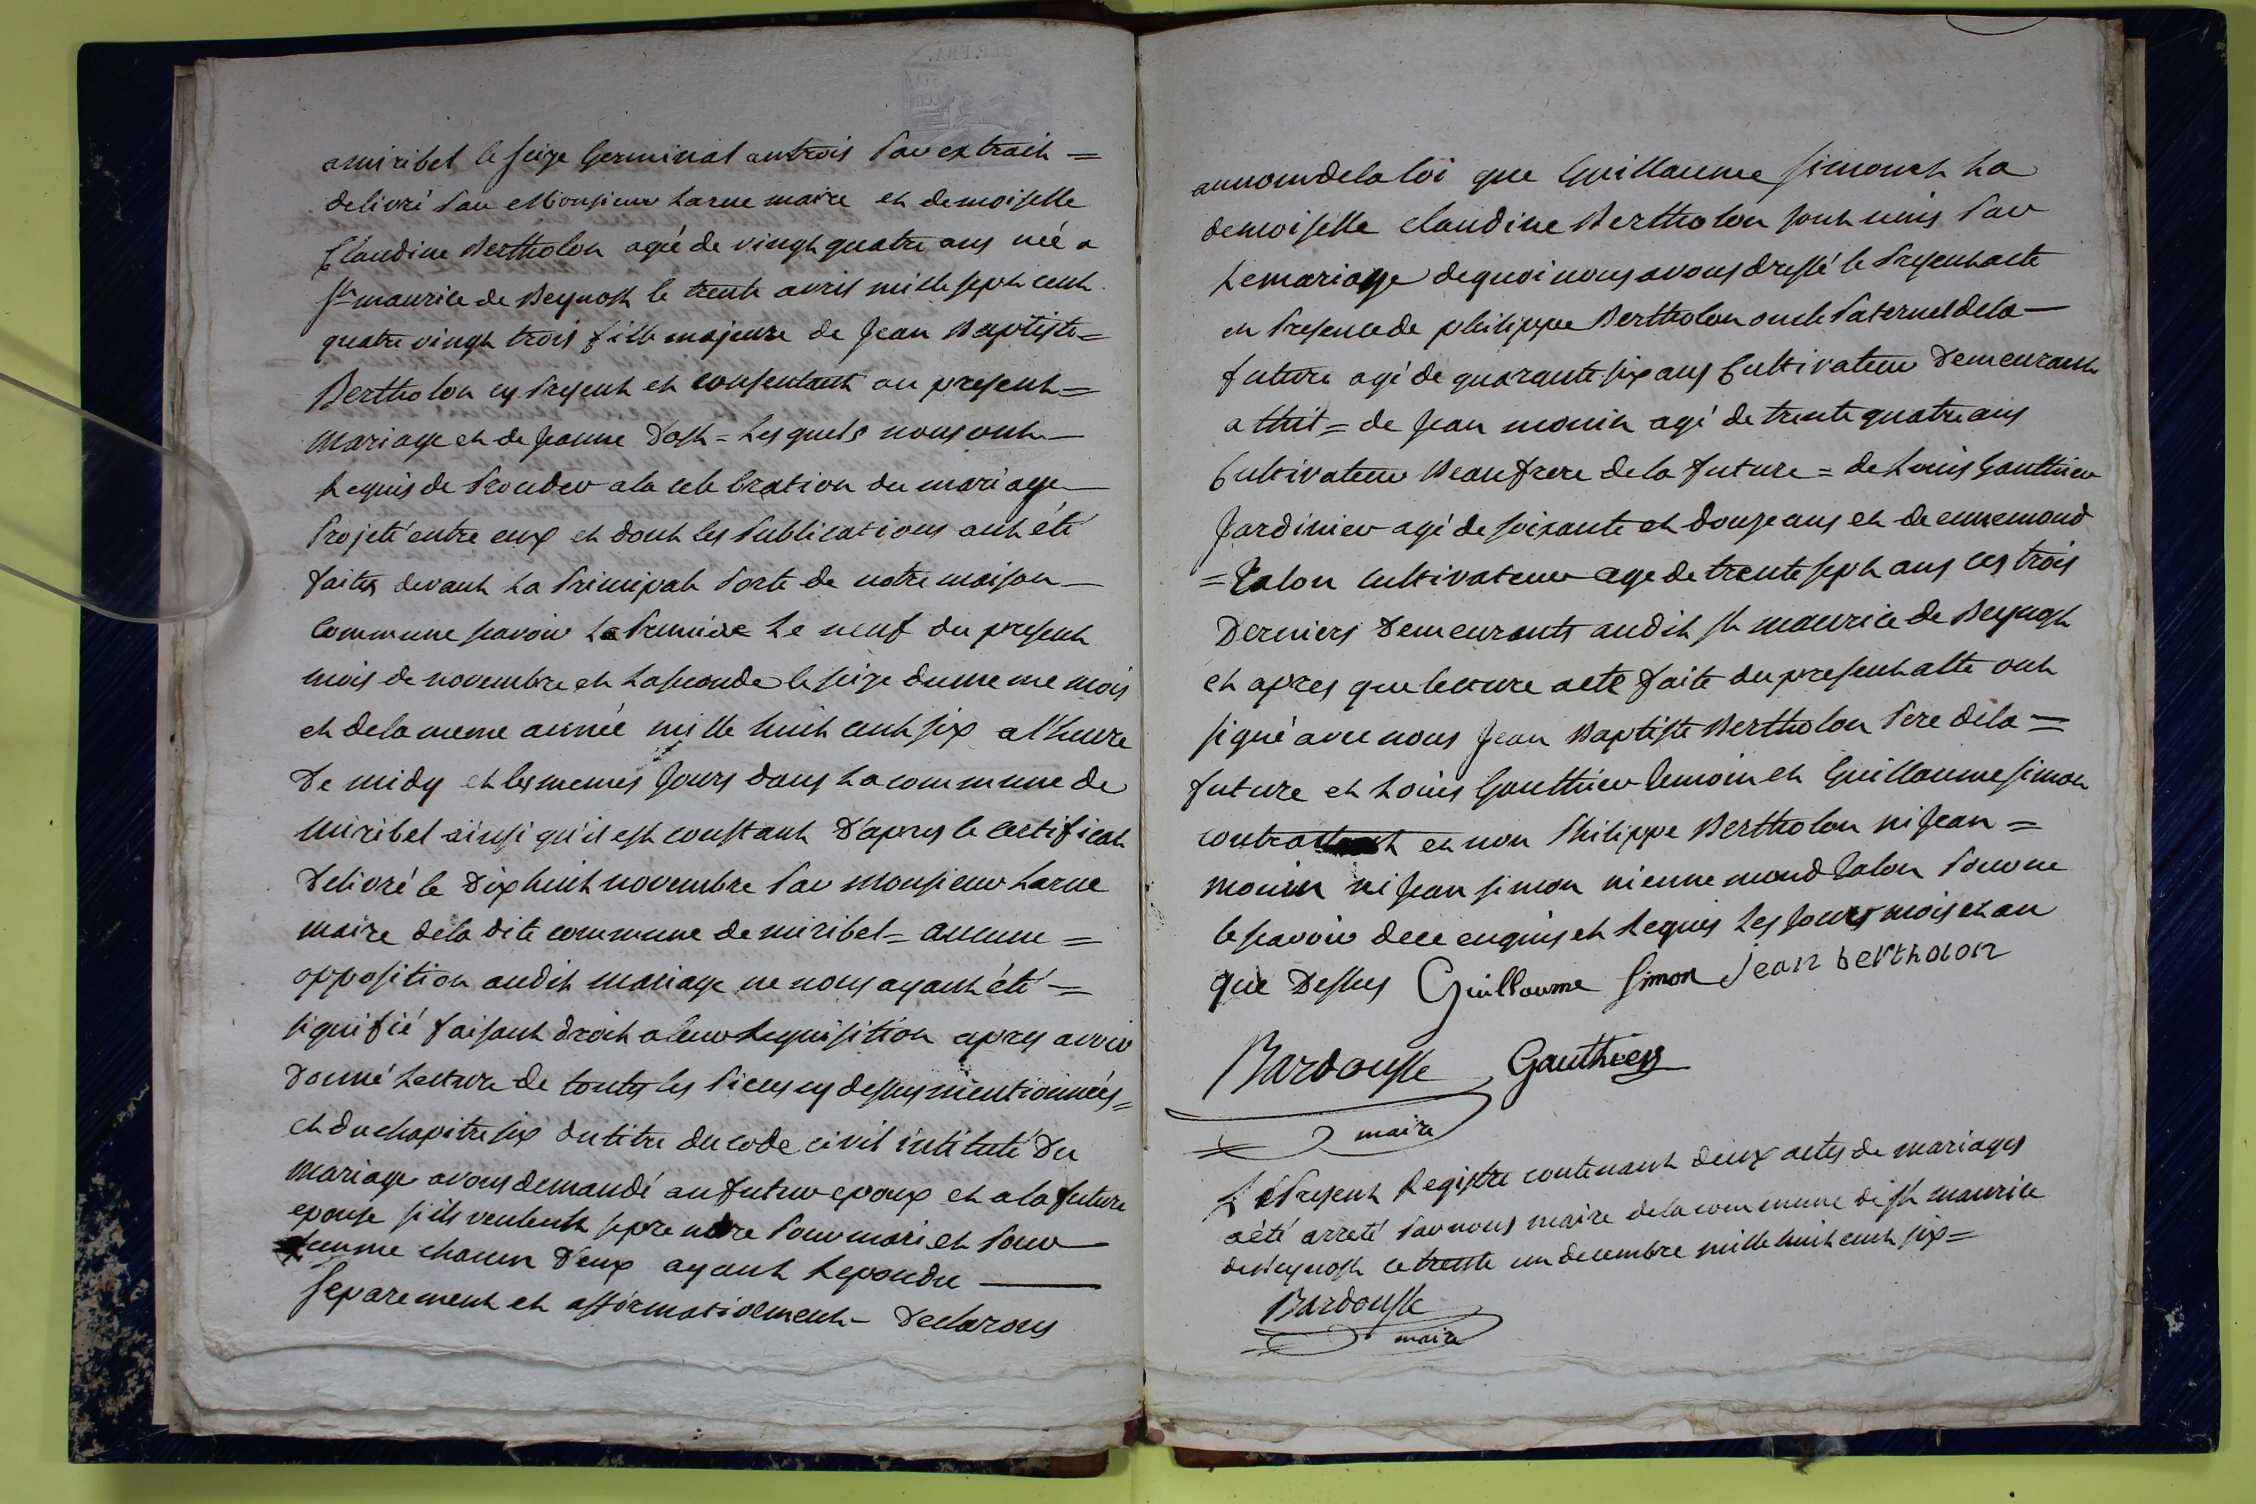 amiribel le seize Germinal an trois par extrait =
delivré par Monsieur Larue maire et demoiselle
Claudine Bertholon agé de vingt quatre ans né a
St maurice de Beynost le trente avril mille sept cent
quatre vingt trois fille majeure de Jean Baptiste =
Bertholon cy present et consentant au present =
mariage et de Jeanne Dost = Lesquels nous ont
Requis de proceder a la celebration du mariage
projeté entre eux et dont les publications ont été
faites devant La principale porte de notre maison
Commune scavoir La premiere Le neuf du present
mois de novembre et La seconde le seize du meme mois
et de la meme année mille huit cent six a l'heure
De midy et les memes jours dans La commune de
Miribel ainsi qu'il est constant D'apres le certificat
Delivré le Dix huit novembre par Monsieur Larue
maire de la dite commune de miribel = aucune =
opposition audit mariage ne nous ayant été =
signifié faisant droit a leur Requisition apres avoir
Donné Lecture de toutes les pieces cy dessus mentionnées =
et du chapitre six du titre du code civil intitulé Du
Mariage avons demandé au futur epoux et a la future
epouse s'ils veulent se prendre pour mari et pour
femme chacun D'eux ayant Repondu
Separement et affirmativement - Declarons
au nom de la loi que Guillaume Simon et La
demoiselle Claudine Bertholon sont unis par
Le mariage de quoi nous avons dressé le present acte
en presence de philippe Bertholon oncle paternel de la
future agé de quarante six ans Cultivateur Demeurant
a thil = de Jean monin agé de trente quatre ans
Cultivateur Beaufrere de la future = de Louis Gauthier
Jardinier agé de soixante et douze ans et de ennemond
= Talon cultivateur age de trente sept ans ces trois
Derniers Demeurants audit st maurice de Beynost
et apres que lecture a eté faite du present acte ont
signé avec nous Jean Baptiste Bertholon pere de la =
future et Louis Gauthier temoin et Guillaume simon
contractant et non Philippe Bertholon ni Jean =
monin ni Jean simon ni ennemond Talon pour ne
le scavoir de ce enquis et Requis Les jours mois et an
que Dessus Guillaume Simon Jean bertholon
Bardousse Gauthier
maire
Le present Registre contenant deux actes de mariages
a été arreté par nous maire de la commune de st maurice
de Beynost ce trente un decembre mille huit cent six =
Bardousse
maire